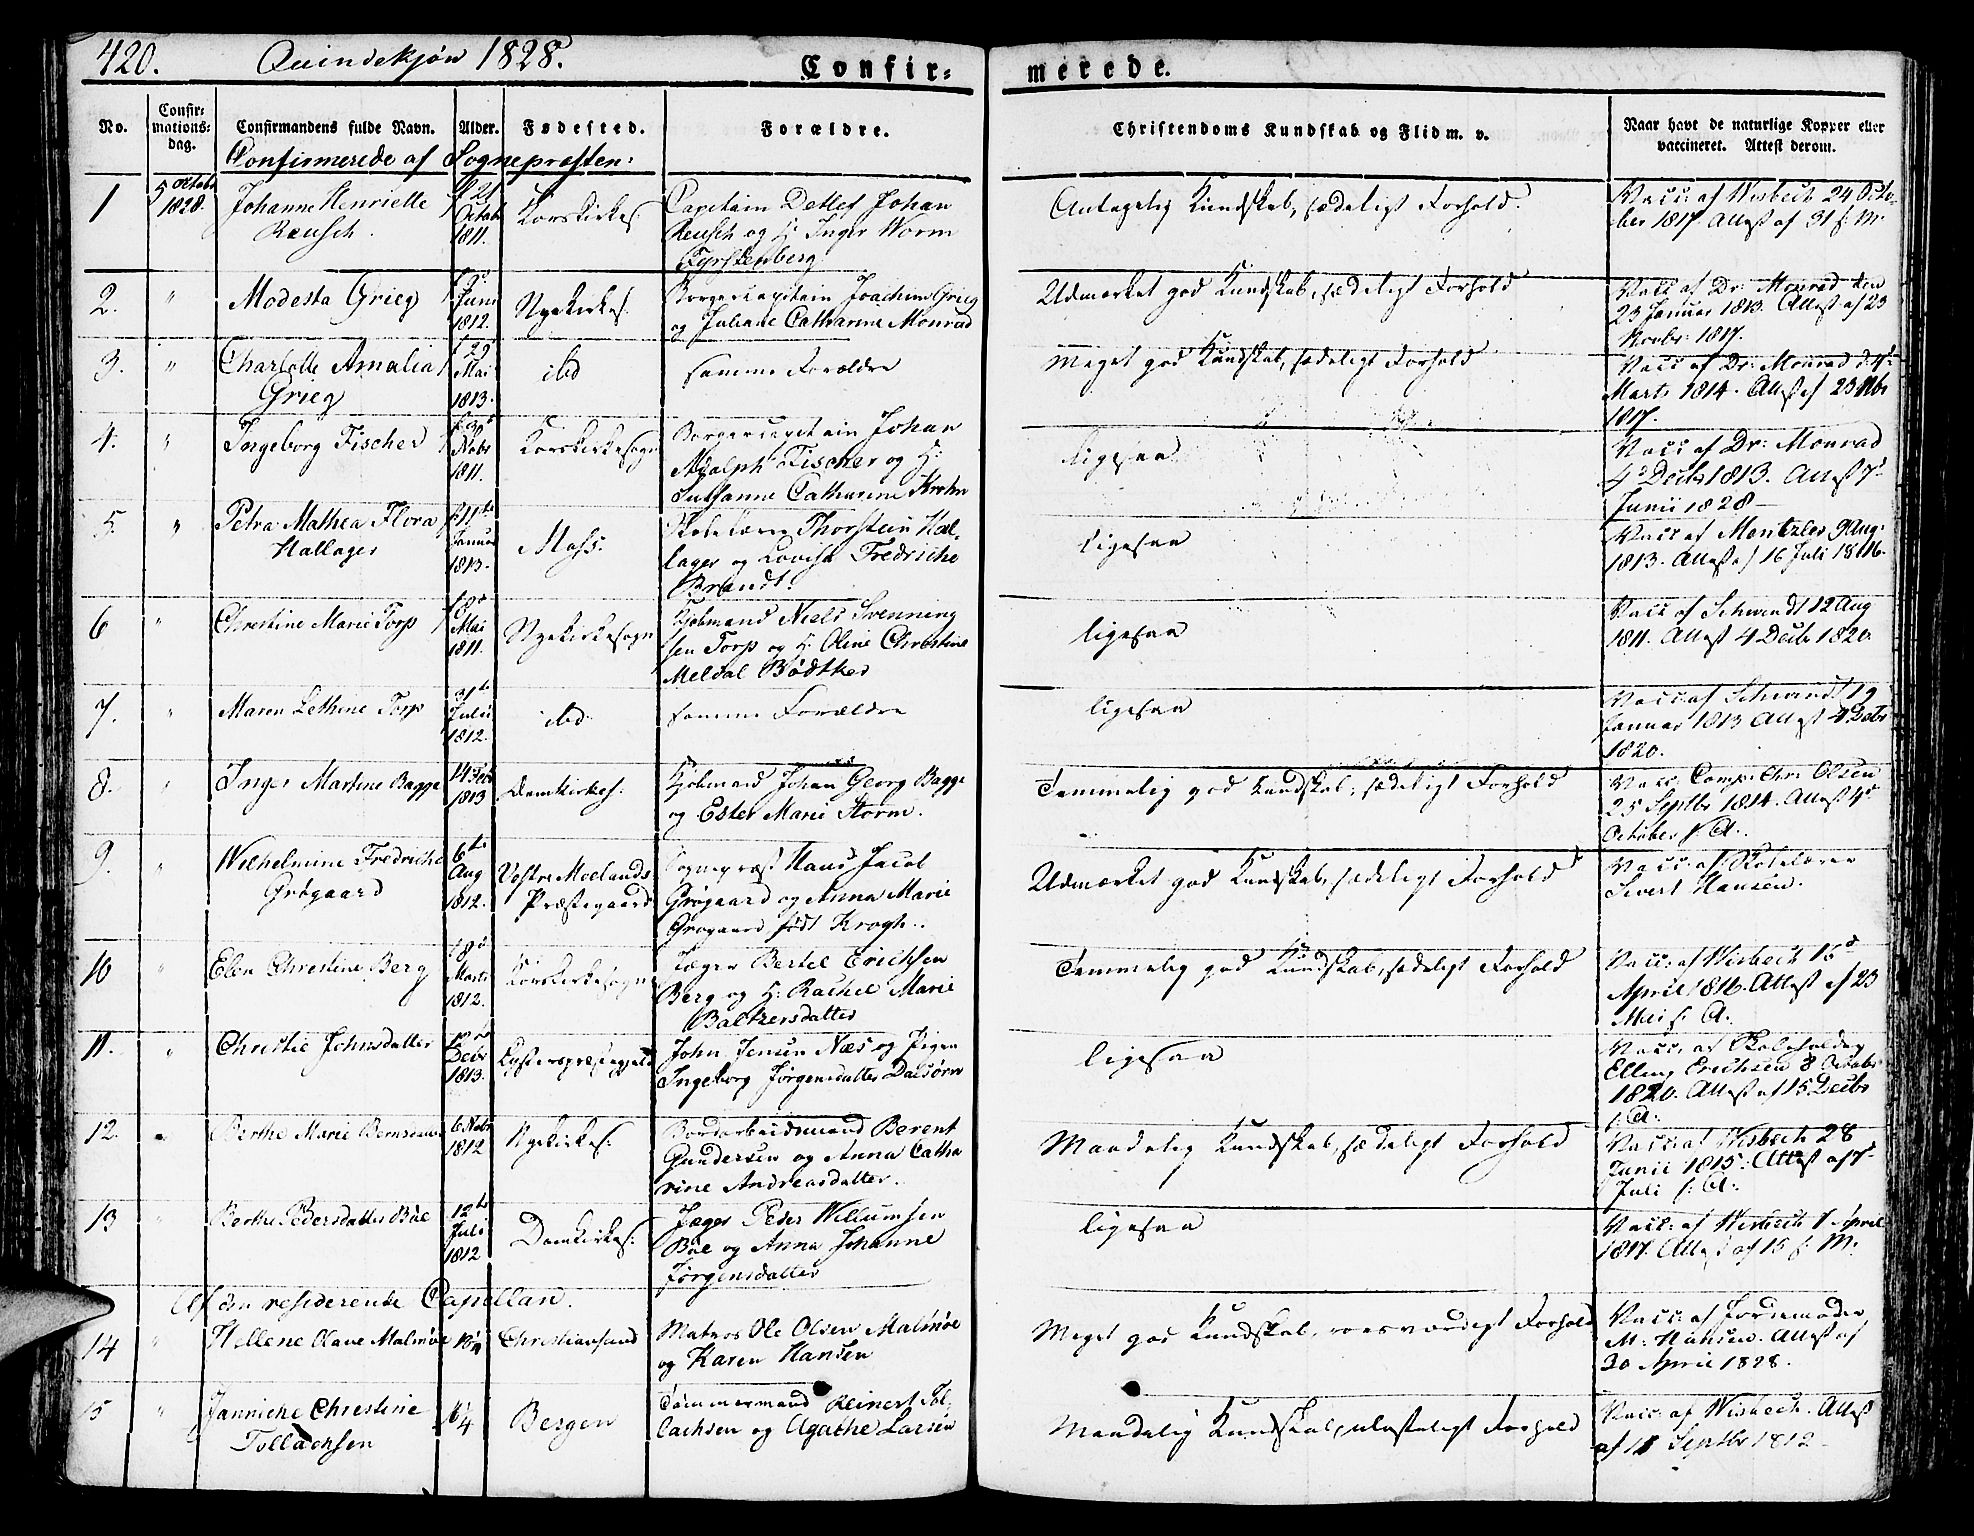 420. Quindekjøn 1828. Confir-merede.
No. Confirmations-dag. Confirmandens fulde Navn. Alder. Fødested. Forældre. Christendoms Kundskab og Flid m. v. Naar havt de naturlige Kopper eller vaccineret. Attest derom.
Confirmerede af Sognepræsten:
1 5 Octobr 1828. Johanne Henriette Reusch. Octob 1811. Korskirkes Capitain Detlef Johan Reusch og H. Inger Worm Fyrstenberg Antagelig Kundskab, sædeligt Forhold. Vacc: af Wisbech 24 October 1817. Attest af 31 s. M.
2. " Modesta Grieg Juni 1812. Nyekirkes: Borgercapitain Joachim Grieg og Juliane Catharine Monrad Udmærket god Kundskab, sædeligt Forhold Vacc af Dr: Monrad den 23 Januar 1813. Attest af 23 Novbr: 1817.
3. " Charlotte Amalia Grieg f 29 Mai 1813. ibd samme Forældre Meget god Kundskab, sædeligt Forhold Vacc af Dr: Monrad d 4d Marts 1814. Attest af 23 Nbr 1817.
4. " Ingeborg Fischer 1811. Korskirkesogn Borgercapitain Johan Adolph Fischer og H: Susanne Catharine Krohn ligesaa Vacc af Dr: Monrad 4d Decbr 1813. Attest 7d Junii 1828 —
5. " Petra Mathea Flora Hallager f 11te Januar 1813. Moss: Skolelærer Thorstein Hallager og Lovise Fredriche Brandt. ligesaa Vacc af Mentzler 9 Aug: 1813. Attest af 16 Juli 1816.
6 " Christine Marie Torp Mai 1811. Nyekirkesogn Kjøbmand Niels Svenningsen Torp og H. Oline Christine Meldal Bødtker ligesaa Vacc af Schwindt 12 Aug 1811. Attest 4 Decb 1820.
7. " Maren Lethine Torp 31te Julii 1812. ibd samme Forældre ligesaa Vacc: af Schwindt 19 Januar 1813 Attest 4 Decbr 1820.
8. " Inger Martine Bagge 14 Feb 1813 Domkirkes: Kjøbmand Johan Georg Bagge og Ester Marie Storm. Temmelig god Kundskab, sædeligt Forhold Vacc Comp: Chr: Olsen 25 Septbr 1814. Attest 4d October s. A.
9. " Wilhelmine Fredriche Grøgaard 6te Aug 1812. Vestre Moelands Præstegaard Sognepræst Hans Jacob Grøgaard og Anna Marie Grøgaard født Krogh. Udmærket god Kundskab, sædeligt Forhold Vacc: af Skolelærer Sivert Hansen.
10 " Elen Christine Berg Marts 1812. Korskirkesogn Jæger Bertel Erichsen Berg og H: Rachel Marie Baltzersdatter Temmelig god Kundskab, sædeligt Forhold Vacc: af Wisbech 15d April 1816. Attest af 23 Mai s: A.
11. " Christie Johnsdatter Decbr 1813. Lysterspræstegjeld John Jensen Næs og Pigen Ingeborg Jørgensdatter Dalsøren ligesaa Vacc: af Skoleholder Elling Erichsen 8 Octobr 1820. Attest af 15 Decbr s: A:
12. " Berthe Marie 6 Nobr 1812 Nyekirkes: Bordarbeidsmand Berent Gundersen og Anna Catharine Andreasdatter. Maadelig Kundskab, sædeligt Forhold Vacc: af Wisbech 28 Junii 1815. Attest af 7d Juli s: A:
13 Berthe Pedersdatter Bøe 12te Juli 1812 Domkirkes: Jæger Peder Willumsen Bøe og Anna Johanne Jørgensdatter ligesaa Vacc: af Wisbech 1 April 1817. Attest af 15 s: M:
Af den residerende Capellan.
14 " Hellene Olave Malmøe Christiansund Matros Ole Olsen Malmøe og Karen Hansen Meget god Kundskab, roesværdigt Forhold Vacc: af Jordemoder M: Hansen. Attest af 30 April 1828.
15 " Jannicke Christine Tollachsen Bergen Tømmermand Reinert Tollachsen og Agathe Larsen Maadelig Kundskab, ulasteligt Forhold Vacc: af Wisbech. Attest af 11 Septbr 1812